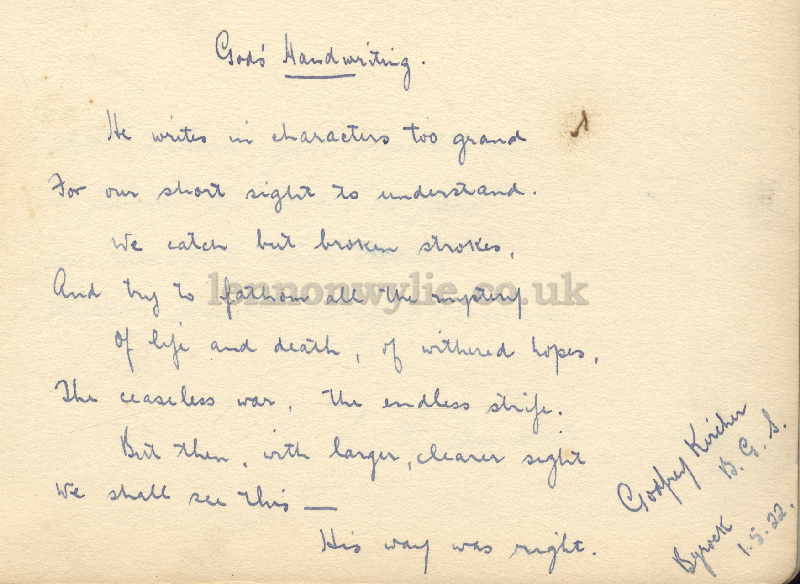 God's Handwriting.
He writes in characters too grand
For our short sight to understand.
We catch but broken strokes,
And try to fathom all the mystery
Of life and death, of withered hopes,
The ceaseless war, the endless strife.
But then, with larger, clearer sight
We shall see this —
His way was right.
Godfrey Kircher
B. G. S.
Byrock
1.5.22.
lennonwylie.co.uk